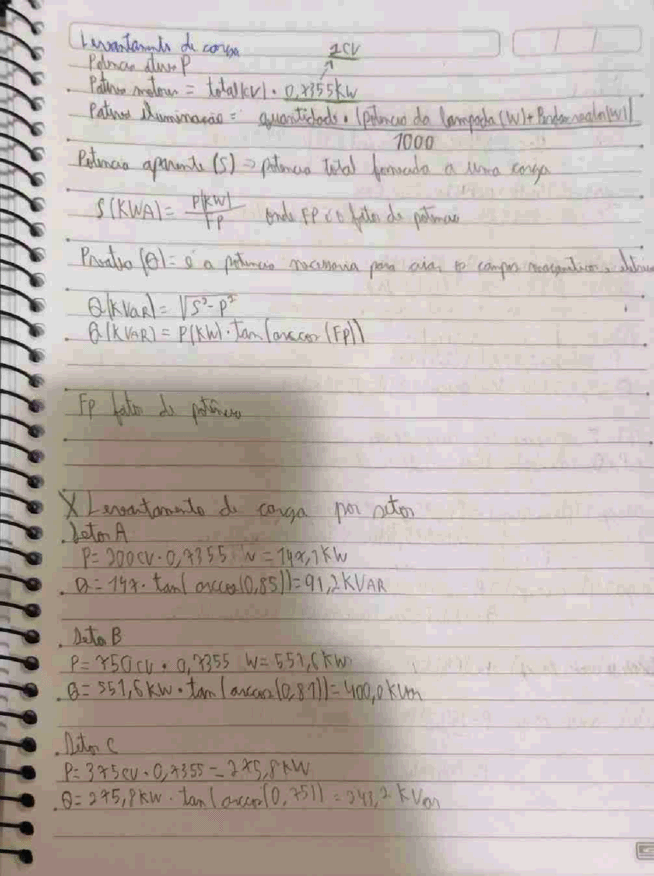 Levantamento de carga
1CV
Potencia ativa P
Potencia motores = total(CV) · 0,7355kW
Potencia iluminação = quantidade · (potencia da lampada (W) + Perda no reator(W))
1000
Potencia aparente (S) => potencia total fornecida a uma carga
S(KWA) = P(KW) / FP onde FP é o fator de potencia
Reativa (Q) = é a potencia necessaria para criar o campo magnetico
Q(KVAR) = √S²-P²
Q(KVAR) = P(KW) · tan(arccos(FP))
FP fator de potência
X Levantamento de carga por setor
. Setor A
P= 200CV · 0,7355 W = 147,1KW
. Q= 147 · tan(arccos(0,85)) = 91,2KVAR
. Setor B
P= 750CV · 0,7355 W = 551,6KW
Q= 551,6KW · tan(arccos(0,81)) = 400,0KVar
. Setor C
P= 375CV · 0,7355 = 275,8KW
. Q= 275,8KW · tan(arccos(0,75)) = 243,2KVar